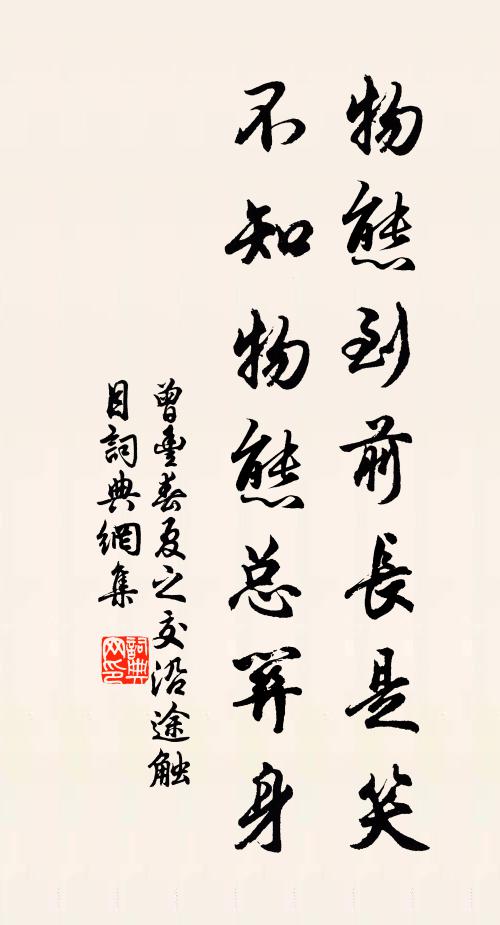 物態到前長是笑
不知物態总箅身
曾豐春夏之交沿途触
目詞典網集
詞典
网印